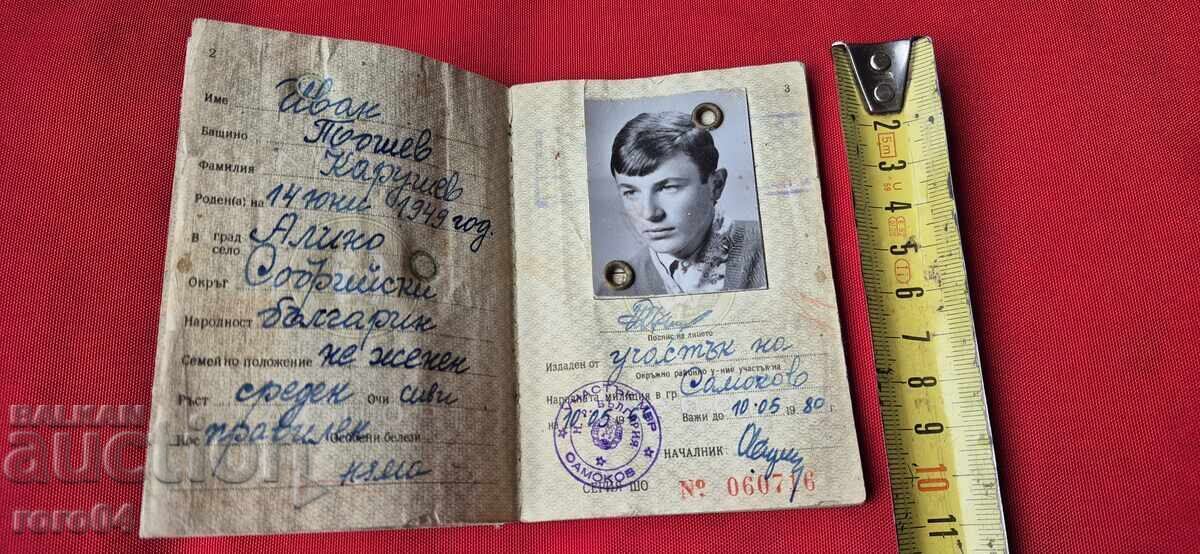 2
Име Иван
Бащино Тошев
Фамилия Карушев
Роден(а) на 14 юни 1949 год.
В град село Алино
Окръг Софийски
Народност българин
Семейно положение не женен
Ръст среден Очи сиви
Нос правилен Особени белези
няма
3
Подпис на лицето
Издаден от участък на
Окръжно районно у-ние участък на
Народната милиция в гр. Самоков
на 10.05 19 Важи до 10.05 1980 г.
НАЧАЛНИК:
УЧАСТЪК МВР
Н. Р. БЪЛГАРИЯ
САМОКОВ
СЕРИЯ ШО № 060716
2
5m
3
4
5
6
7
8
9
10
11
BALKAN
auction
roro64